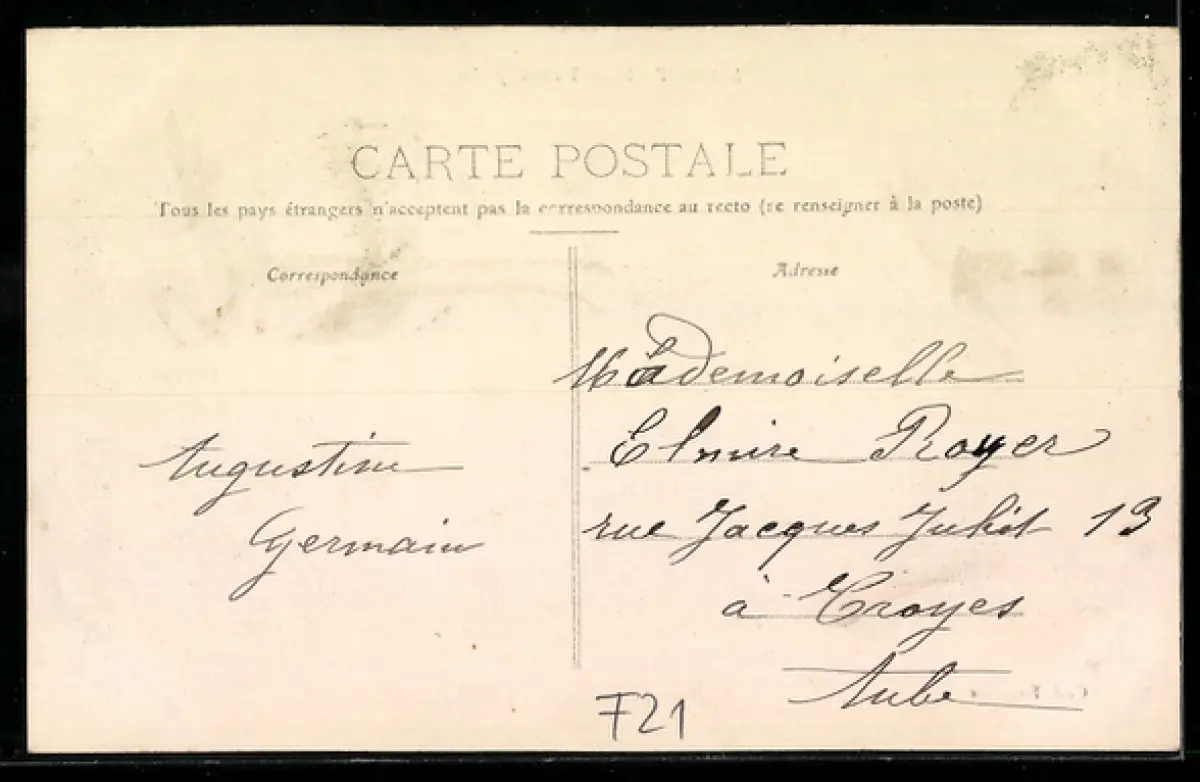 CARTE POSTALE
Tous les pays étrangers n'acceptent pas la correspondance au recto (se renseigner à la poste)
Correspondance
Augustine
Germain
Adresse
Mademoiselle
Elmire Royer
rue Jacques 13
à Troyes
Aube
F21